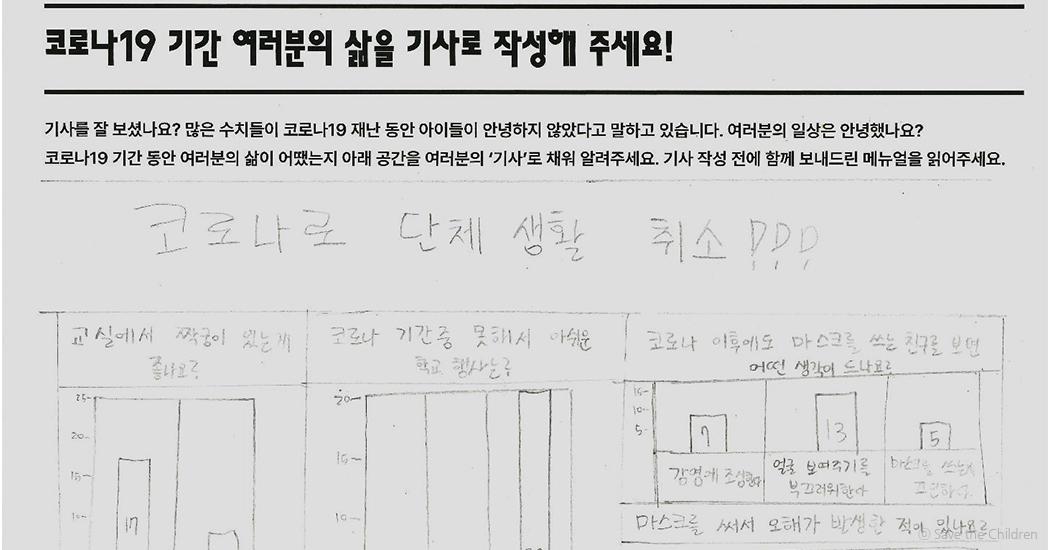 코로나19 기간 여러분의 삶을 기사로 작성해 주세요!
기사를 잘 보셨나요? 많은 수치들이 코로나19 재난 동안 아이들이 안녕하지 않았다고 말하고 있습니다. 여러분의 일상은 안녕했나요?
코로나19 기간 동안 여러분의 삶이 어땠는지 아래 공간을 여러분의 '기사'로 채워 알려주세요. 기사 작성 전에 함께 보내드린 메뉴얼을 읽어주세요.
코로나로 단체 생활 취소!!!
교실에서 짝궁이 있는게
좋나요?
25
20
15
10
17
코로나 기간중 못해서 아쉬운
학교 행사는?
20
15
10
코로나 이후에도 마스크를 쓰는 친구를 보면
어떤 생각이 드나요?
15
10
5
7
13
5
감염에
얼굴 보여주기를
부끄러워한다
마스크를
마스크를 써서 오해가 발생한 적이 있나요?
© Save the Children